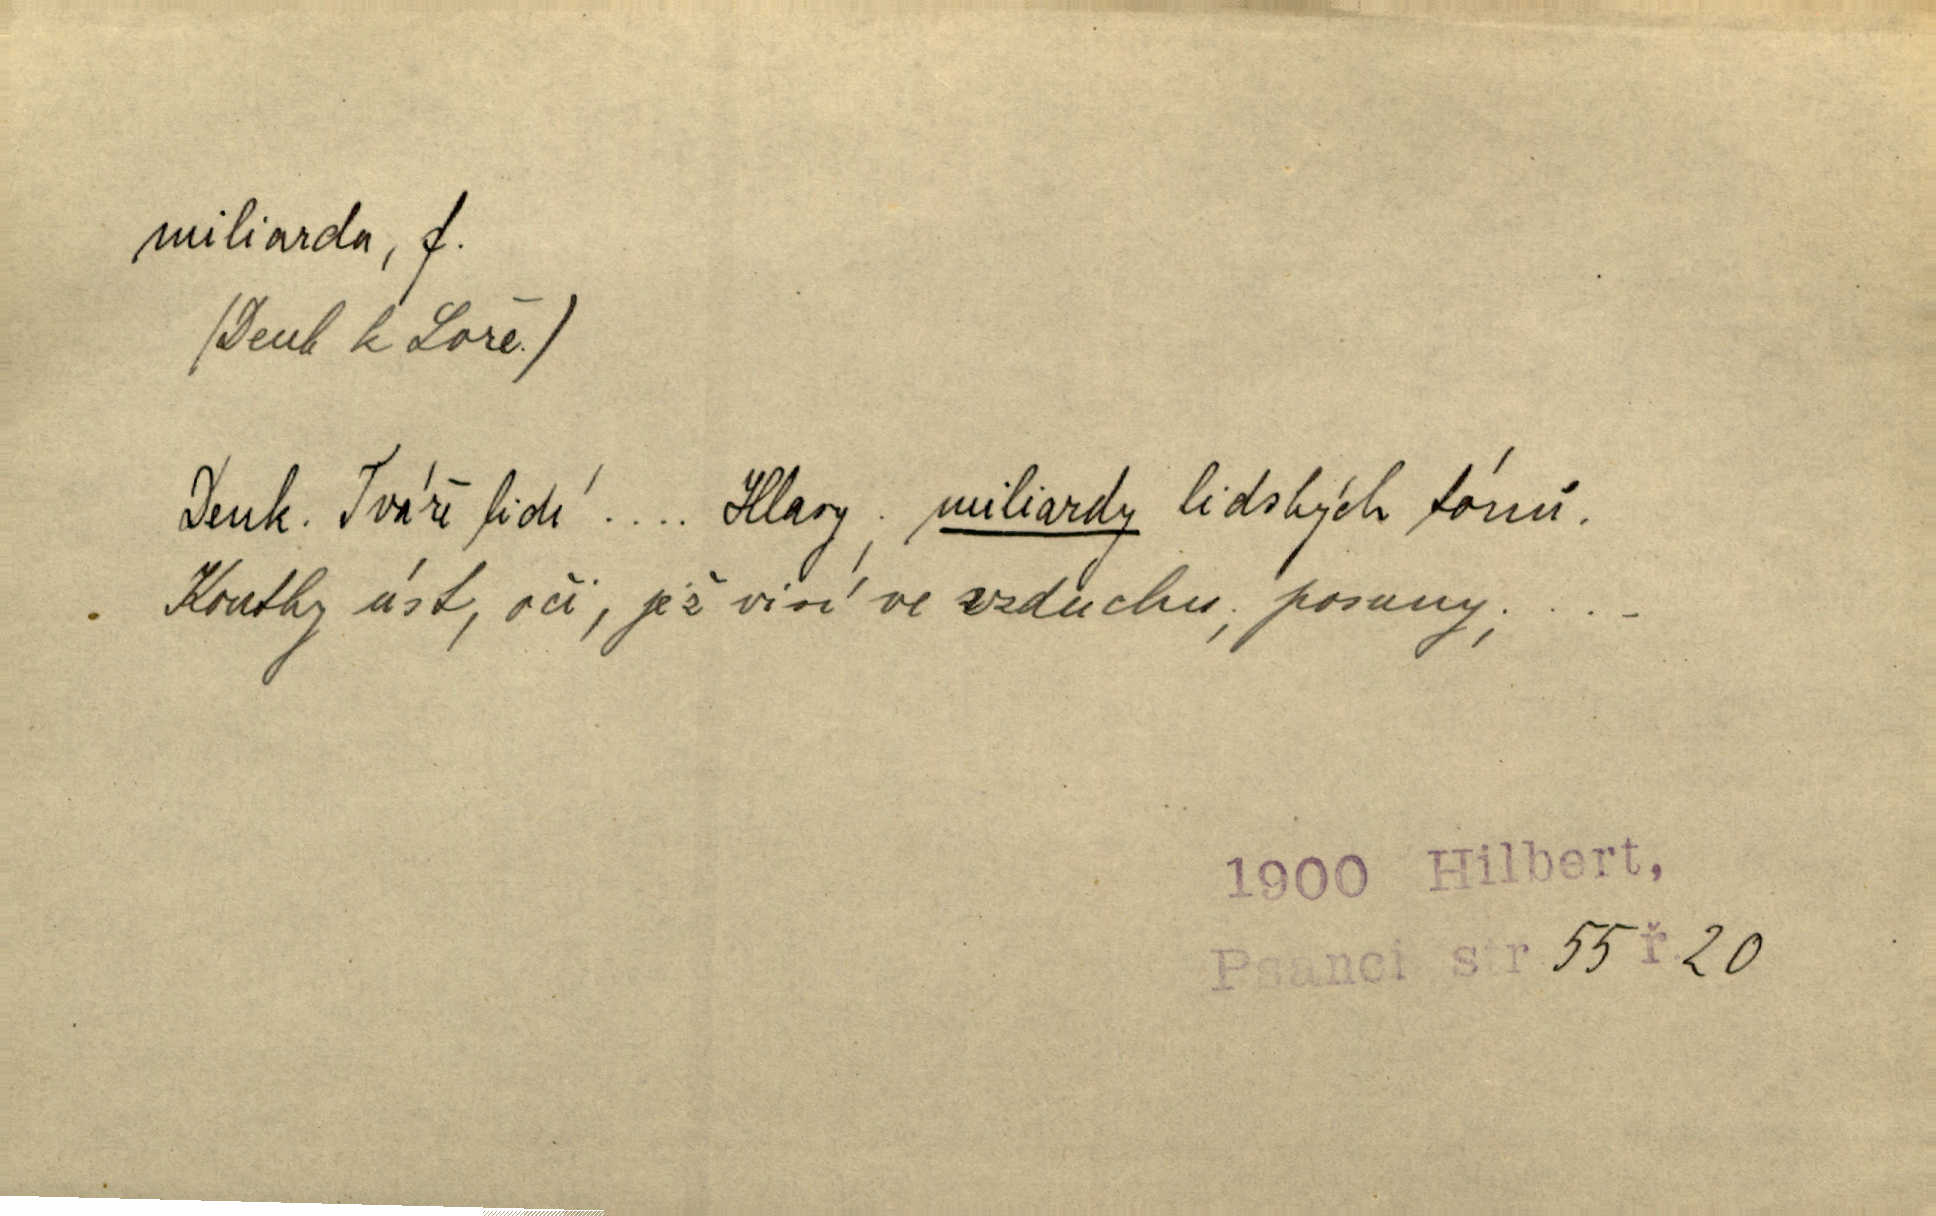 miliarda, f.
(Denk k Loře.)
Denk. Tváře lidí .... Hlasy; miliardy lidských tónů.
Koutky úst, oči, jež visí ve vzduchu; posuny; ....
1900 Hilbert,
Psanci str 55 ř. 20